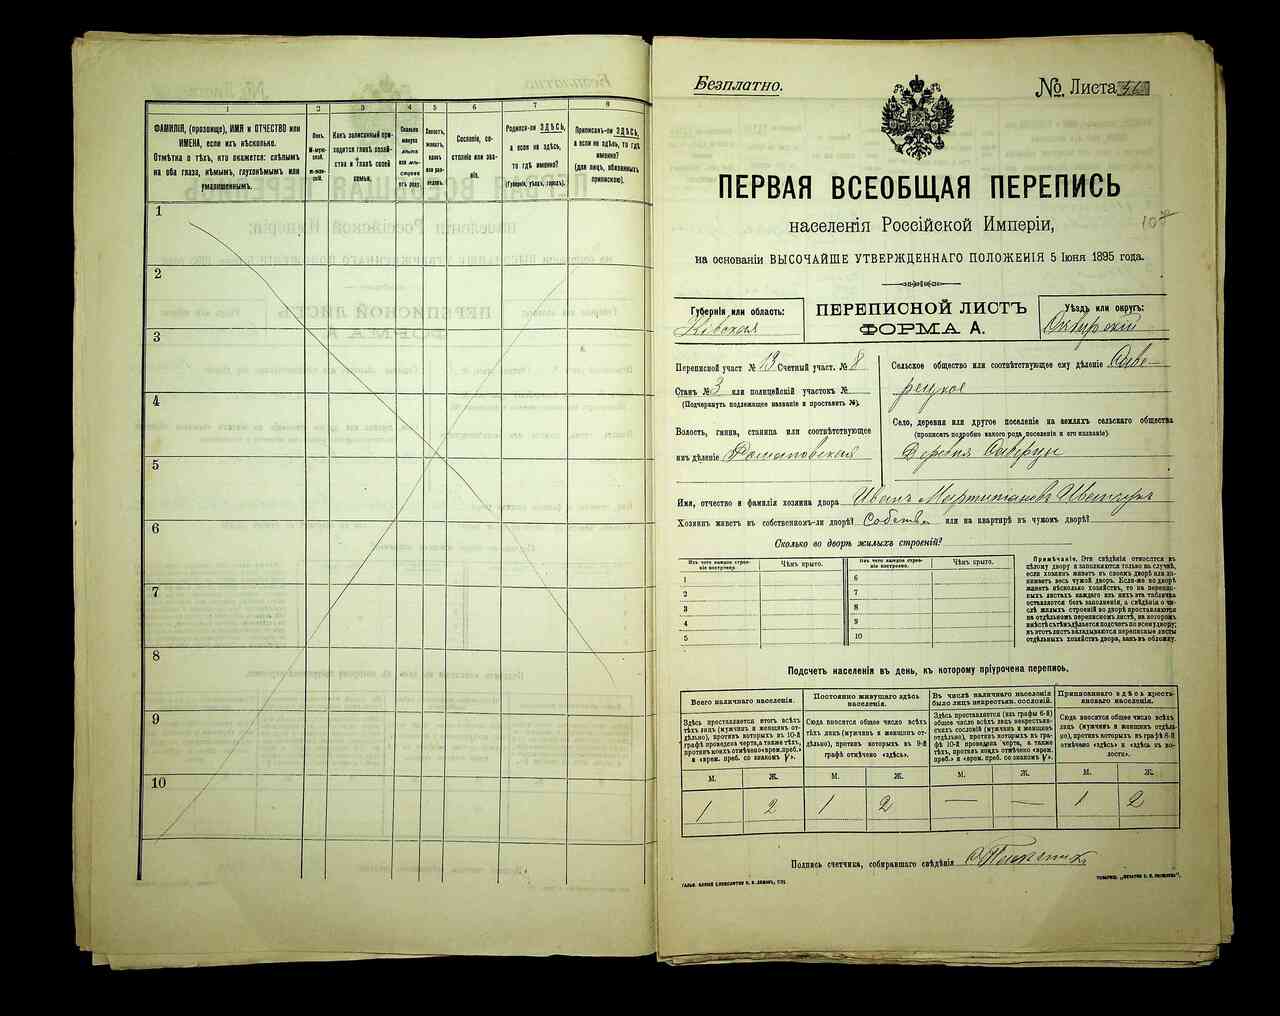 1
2
3
4
5
6
7
8
ФАМИЛІЯ, (прозвище), ИМЯ и ОТЧЕСТВО или
ИМЕНА, если ихъ нѣсколько.
Отмѣтка о тѣхъ, кто окажется: слѣпымъ
на оба глаза, нѣмымъ, глухонѣмымъ или
умалишеннымъ.
Полъ.
М-мужской.
Ж-женскій.
Какъ записанный приходится главѣ хозяйства и главѣ своей семьи.
Сколько минуло лѣтъ или мѣсяцевъ отъ роду.
Холостъ, женатъ, вдовъ или разведенъ.
Сословіе, состояніе или званіе.
Родился-ли ЗДѢСЬ,
а если не здѣсь,
то гдѣ именно?
(Губернія, уѣздъ, городъ).
Приписанъ-ли ЗДѢСЬ,
а если не здѣсь, то гдѣ
именно?
(для лицъ, обязанныхъ
припискою).
1
2
3
4
5
6
7
8
9
10
Безплатно.
№ Листа 36
ПЕРВАЯ ВСЕОБЩАЯ ПЕРЕПИСЬ
населенія Россійской Имперіи,
107
на основаніи ВЫСОЧАЙШЕ УТВЕРЖДЕННАГО ПОЛОЖЕНІЯ 5 Іюня 1895 года.
Губернія или область:
Кіевская
ПЕРЕПИСНОЙ ЛИСТЪ
ФОРМА А.
Уѣздъ или округъ:
Сквирскій
Переписной участ. № 13 Счетный участ. № 8
Станъ № 3 или полицейскій участокъ №
(Подчеркнуть подлежащее названіе и проставить №).
Волость, гмина, станица или соотвѣтствующее
имъ дѣленіе Романовская
Сельское общество или соотвѣтствующее ему дѣленіе Саве-
рецкое
Село, деревня или другое поселеніе на земляхъ сельскаго общества
(прописать подробно какого рода поселеніе и его названіе).
Деревня Саверцы
Имя, отчество и фамилія хозяина двора Иванъ Мартиновъ
Хозяинъ живетъ въ собственномъ-ли дворѣ? Собств. или на квартирѣ въ чужомъ дворѣ?
Сколько во дворѣ жилыхъ строеній?
Изъ чего каждое строеніе построено.
Чѣмъ крыто.
Изъ чего каждое строеніе построено.
Чѣмъ крыто.
1
2
3
4
5
6
7
8
9
10
Примѣчаніе. Эти свѣдѣнія относятся къ
цѣлому двору и заполняются только въ случаѣ,
если хозяинъ живетъ въ своемъ дворѣ или занимаетъ весь чужой дворъ. Если-же во дворѣ
живетъ нѣсколько хозяйствъ, то на переписныхъ листахъ каждаго изъ нихъ эта табличка
оставляется безъ заполненія, а свѣдѣнія о числѣ жилыхъ строеній во дворѣ проставляются
на отдѣльномъ переписномъ листѣ, на которомъ
вмѣстѣ съ тѣмъ дѣлается подсчетъ по всему двору;
въ этотъ листъ вкладываются переписные листы
отдѣльныхъ хозяйствъ двора, какъ въ обложку.
Подсчетъ населенія въ день, къ которому пріурочена перепись.
Всего наличнаго населенія.
Постоянно живущаго здѣсь
населенія.
Въ числѣ наличнаго населенія
было лицъ некрестьян. сословій.
Приписаннаго здѣсь крестьянскаго населенія.
Здѣсь проставляется итогъ всѣхъ
тѣхъ лицъ (мужчинъ и женщинъ отдѣльно), противъ которыхъ въ 10-й
графѣ проведена черта, а также тѣхъ,
противъ коихъ отмѣчено «врем. преб.»
и «врем. преб. со знакомъ V».
Сюда вносится общее число всѣхъ
тѣхъ лицъ (мужчинъ и женщинъ отдѣльно), противъ которыхъ въ 9-й
графѣ отмѣчено «здѣсь».
Здѣсь проставляется (изъ графы 6-й)
общее число всѣхъ лицъ некрестьянскихъ сословій (мужчинъ и женщинъ
отдѣльно), противъ которыхъ въ графѣ 10-й проведена черта, а также
тѣхъ, противъ коихъ отмѣчено «врем.
преб.» и «врем. преб. со знакомъ V».
Сюда вносится общее число всѣхъ
лицъ (мужчинъ и женщинъ отдѣльно), противъ которыхъ въ графѣ 8-й
отмѣчено «здѣсь» и «здѣсь въ волости».
М. Ж. М. Ж. М. Ж. М. Ж.
1 2 1 2 — — 1 2
Подпись счетчика, собиравшаго свѣдѣнія